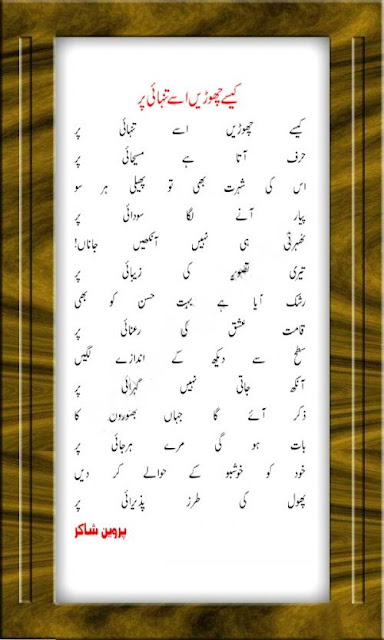 کیسے چھوڑیں اسے تنہائی پر
کیسے چھوڑیں اسے تنہائی پر
حرف آتا ہے مسیحائی پر
اس کی شہرت بھی تو پھیلی ہر سو
پیار آنے لگا رسوائی پر
ٹھہرتی ہی نہیں آنکھیں جاناں!
تیری تصویر کی زیبائی پر
رشک آیا ہے بہت حسن کو بھی
قامت عشق کی رعنائی پر
سطح سے دیکھ کے اندازے لگیں
آنکھ جاتی نہیں گہرائی پر
ذکر آئے گا جہاں بھنوروں کا
بات ہو گی مرے ہرجائی پر
خود کو خوشبو کے حوالے کر دیں
پھول کی طرز پذیرائی پر
پروین شاکر